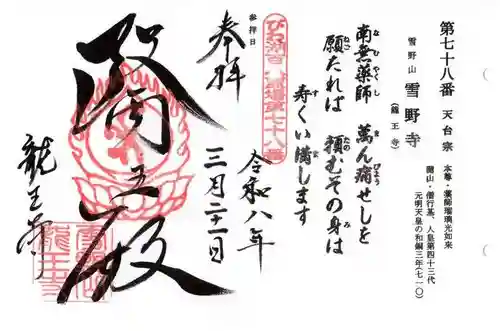 第七十八番 天台宗
雪野山 雪野寺
(龍王寺)
本尊・薬師瑠璃光如来
開山・僧行基、人皇第四十三代
元明天皇の和銅三年(七一〇)
南無薬師 萬ん病せしを
願たれば 頼むその身は
寿くい満します
参拝日
奉拝
令和八年
三月二十一日
殿
龍王寺